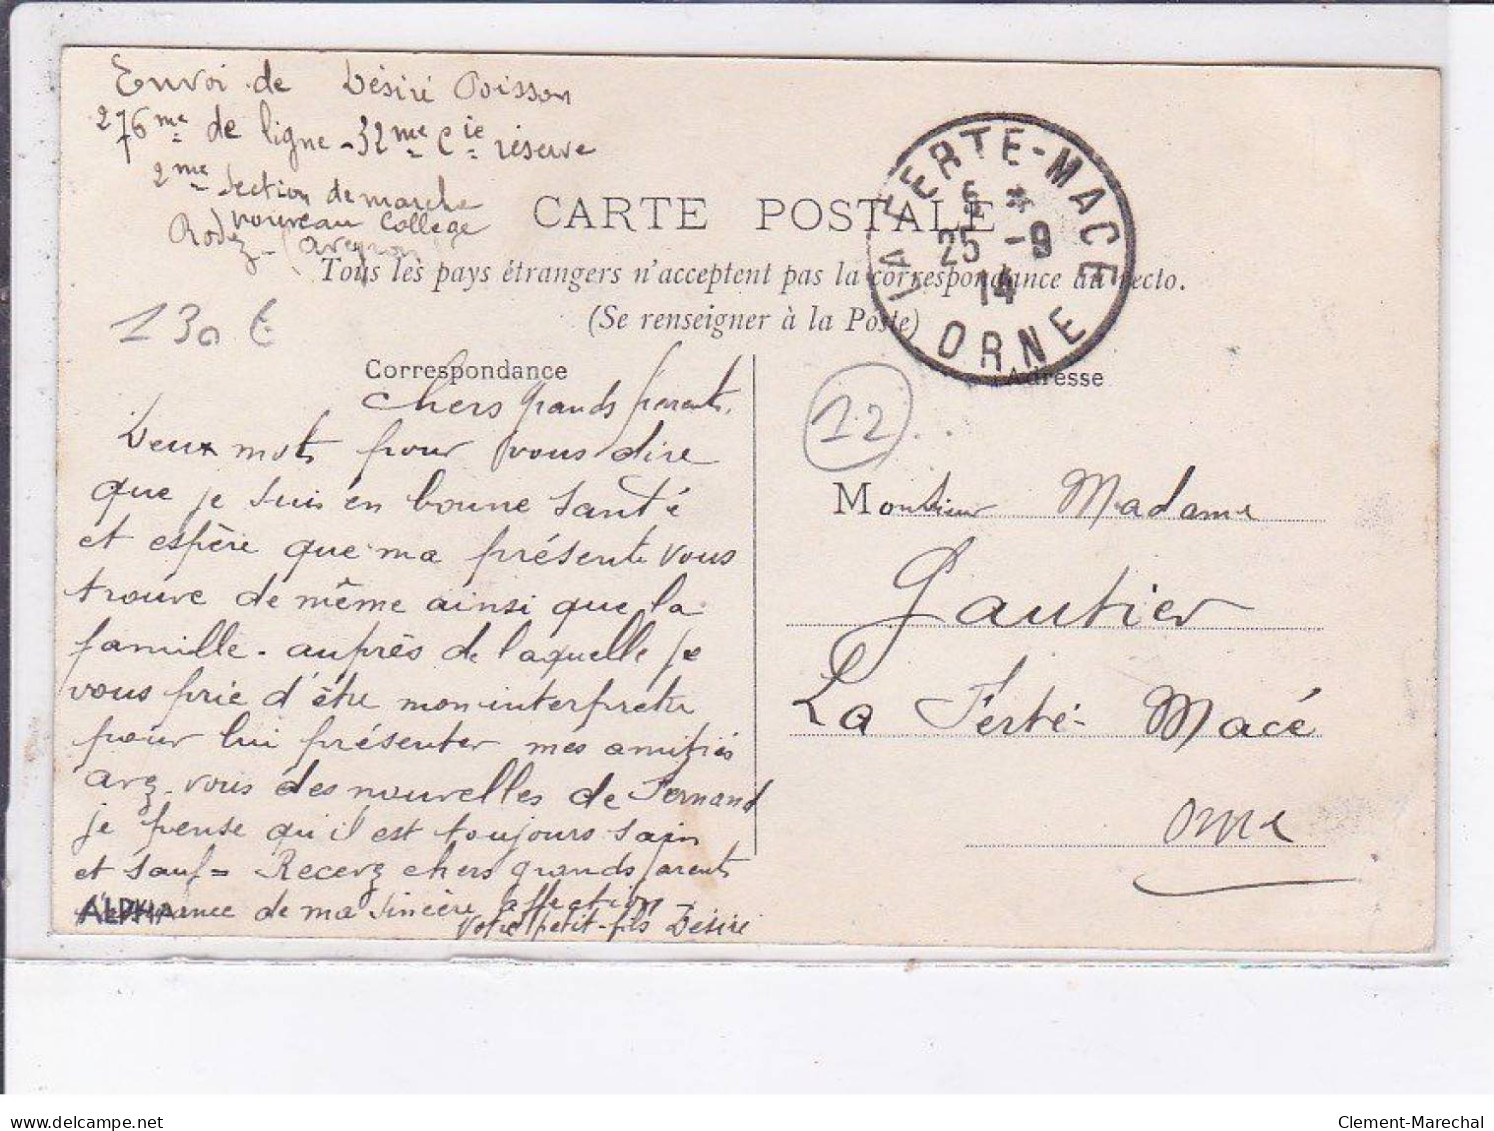 Envoi de Désiré Poisson
276me de ligne - 32me Cie réserve
2me Section de marche
nouveau College
Rodez - (aveyron)
LA FERTE-MACE
25 -9
14
ORNE
CARTE POSTALE
Tous les pays étrangers n'acceptent pas la correspondance au recto.
(Se renseigner à la Poste)
130 €
Correspondance
Chers grands parents,
Deux mots pour vous dire
que je suis en bonne santé
et espère que ma présente vous
trouve de même ainsi que la
famille. auprès de laquelle je
vous prie d'être mon interprete
pour lui présenter mes amitiés
avez-vous des nouvelles de Fernand
je pense qu'il est toujours sain
et sauf = Recevez chers grands parents
ALPHA
de ma sincère affection
Votre petit-fils Désiré
Adresse
12
Monsieur Madame
Gautier
La Ferté-Macé
Orne
delcampe.net
Clement-Marechal